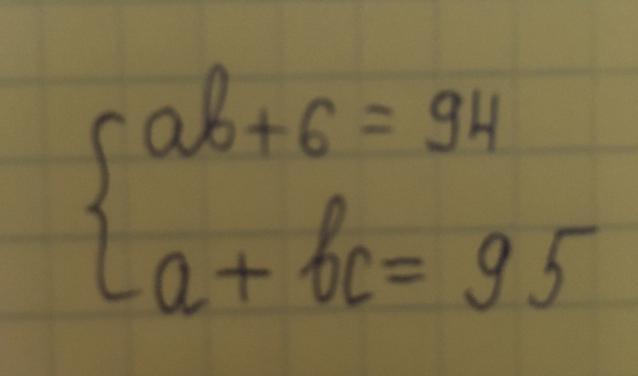 ab+6 = 94
a + bc = 95